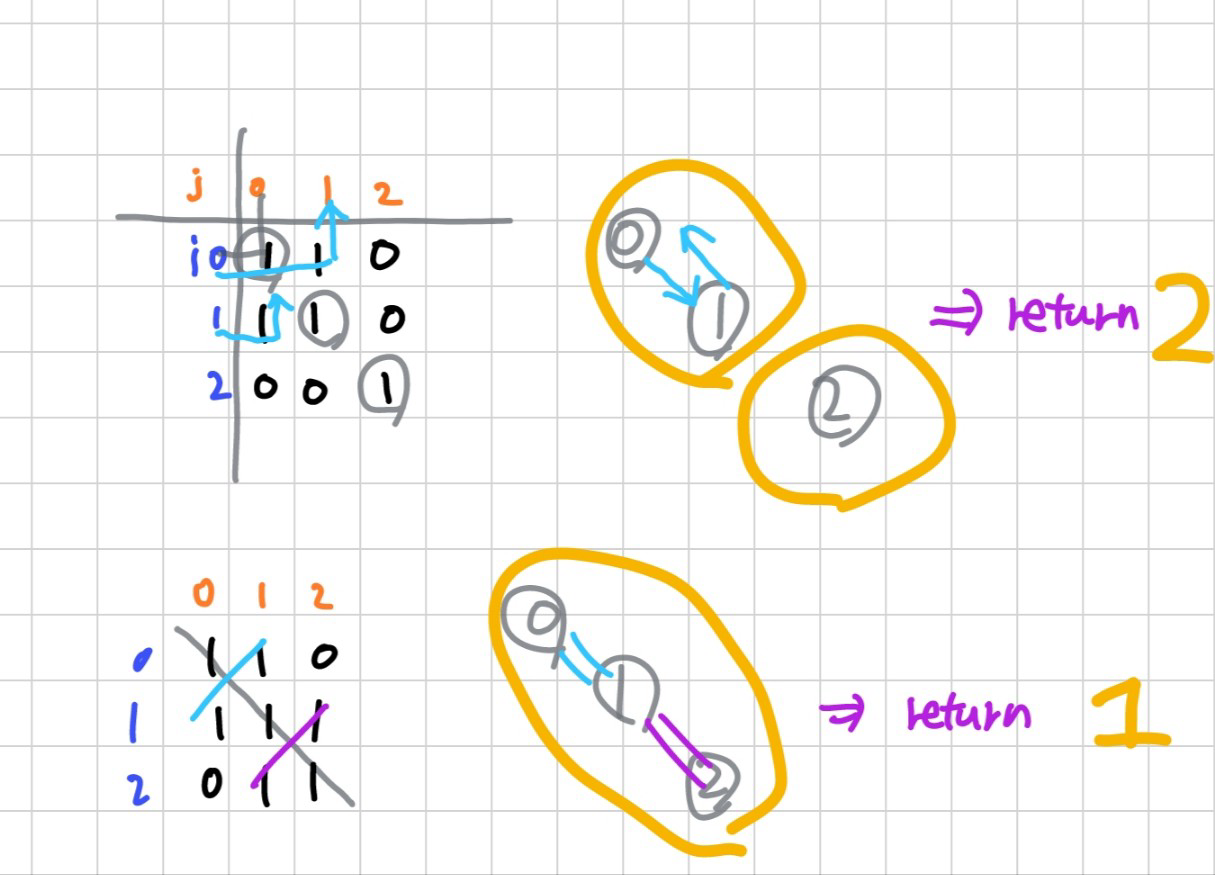 j 0 1 2
i 0 1 1 0
1 1 1 0
2 0 0 1
0
1
2
⇒ return 2
0 1 2
0 1 1 0
1 1 1 1
2 0 1 1
0
1
2
⇒ return 1